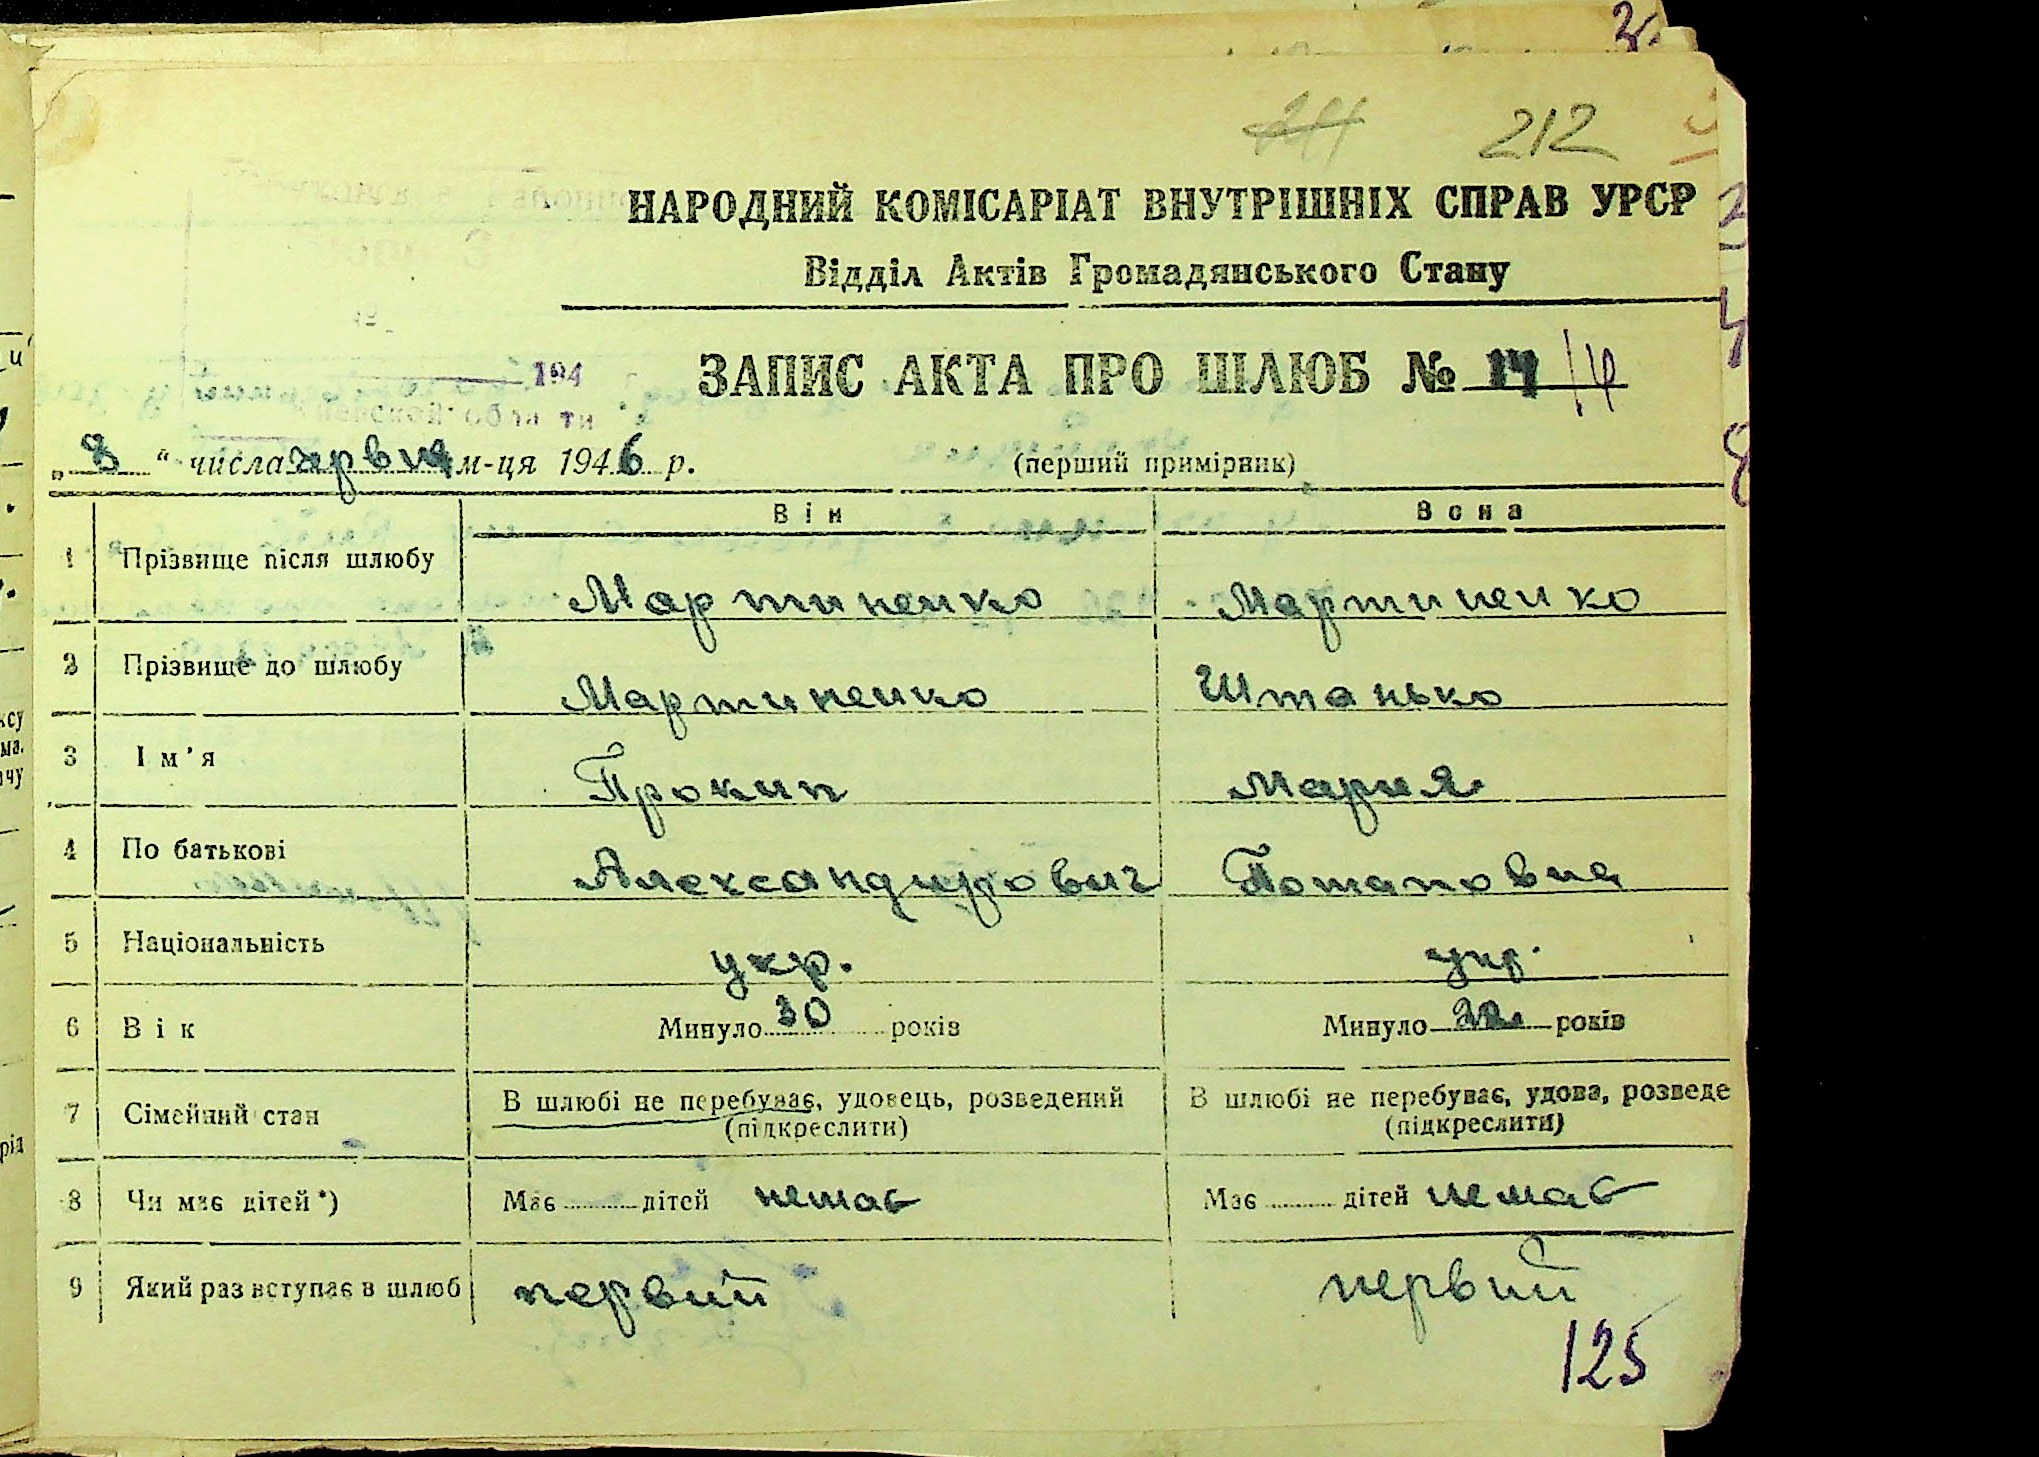 212
НАРОДНИЙ КОМІСАРІАТ ВНУТРІШНІХ СПРАВ УРСР
Відділ Актів Громадянського Стану
194
ЗАПИС АКТА ПРО ШЛЮБ № 14 14
„8“ числа червня м-ця 1946 р. (перший примірник)
Він Вона
1 Прізвище після шлюбу Мартиненко Мартиненко
2 Прізвище до шлюбу Мартиненко Штанько
3 Ім'я Прокип Мария
4 По батькові Александрович Потаповна
5 Національність укр. укр.
6 Вік Минуло 30 років Минуло 22 років
7 Сімейний стан В шлюбі не перебуває, удовець, розведений (підкреслити) В шлюбі не перебуває, удова, розведе (підкреслити)
8 Чи має дітей*) Має дітей немає Має дітей немає
9 Який раз вступає в шлюб первий первий
125